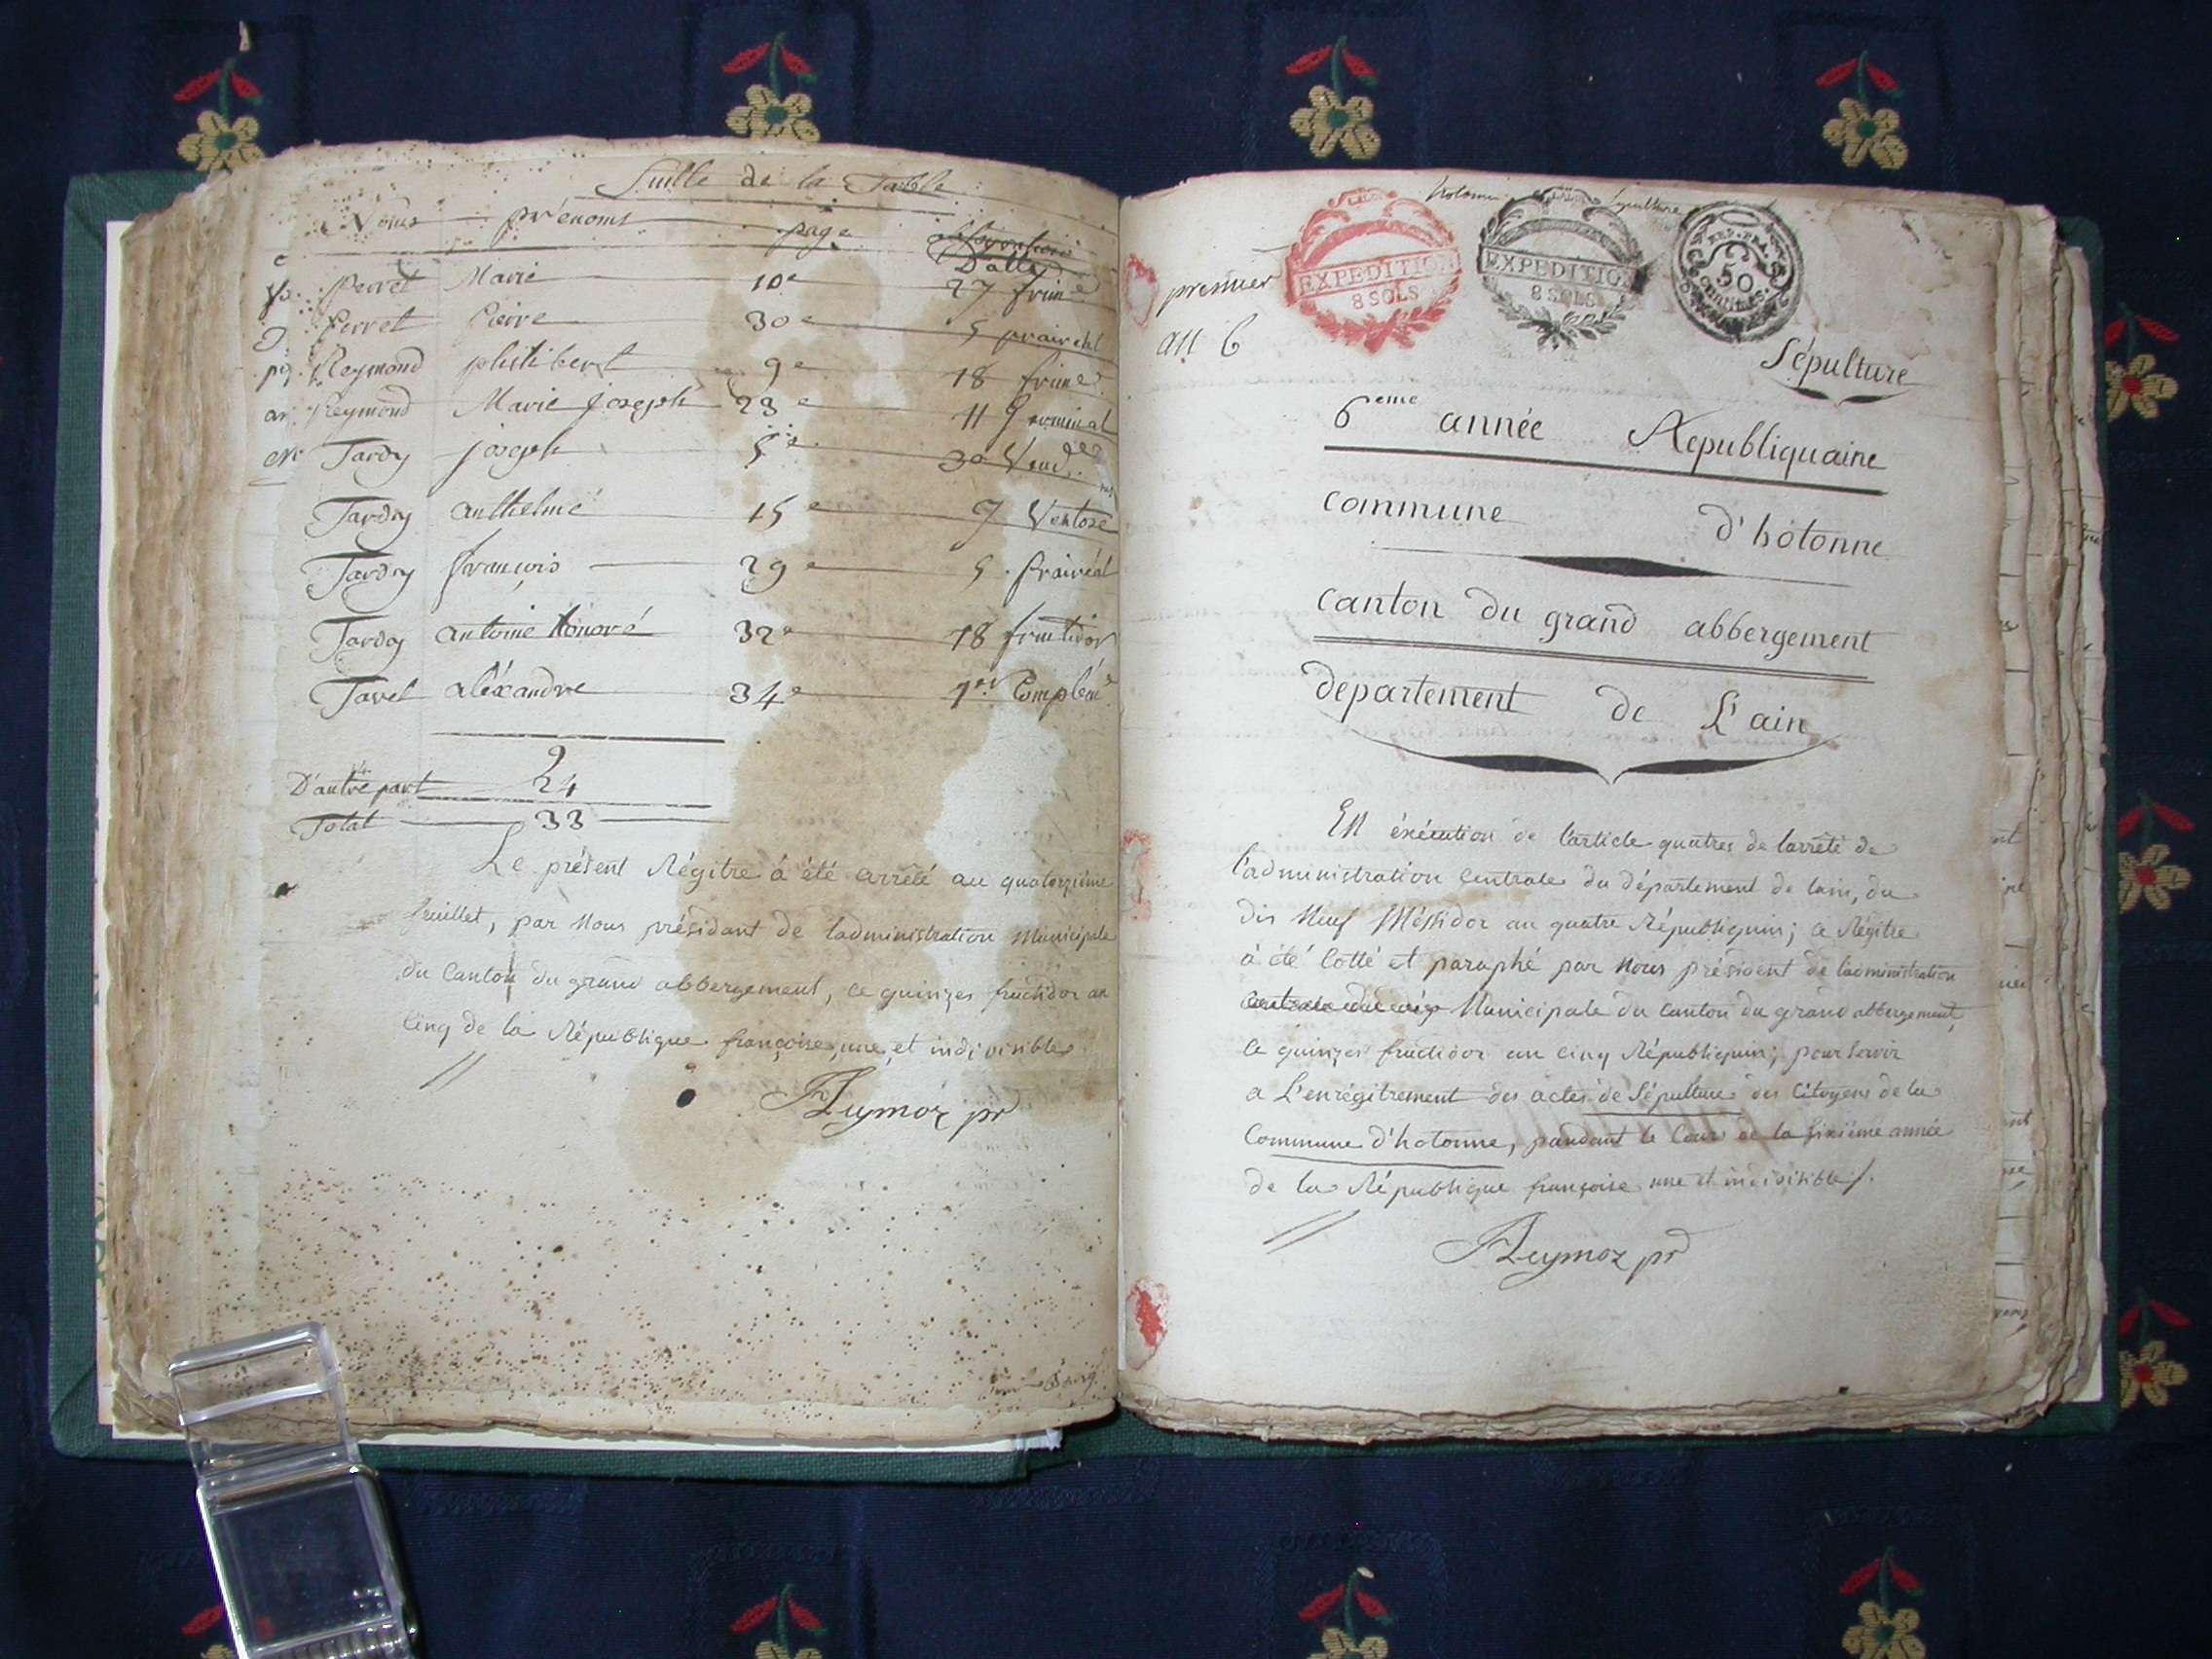 Suitte de la Table
Noms prénoms page Datte
Perret Marie 10e 27 frime
Perret Pierre 30e 5 prairéal
Reymond philibert 9e 18 frime
Reymond Marie joseph 23e 11 Germinal
Tardy joseph 5e 30 Vend.
Tardy anthelme 15e 7 Ventose
Tardy françois 29e 5 prairéal
Tardy antoine honoré 32e 18 fructidor
Tavel aléxandre 34e 1er Complém
9
D'autre part 24
Total 33
Le présent Régitre à été arrêté au quatorzième
feuillet, par Nous présidant de ladministration Municipale
du Canton du grand abbergement, ce quinzes fructidor an
Cinq de la République françoise, une, et indivisible
Reymoz pr
hotonne sépulture
premier
an 6
EXPEDITION
8 SOLS
EXPEDITION
8 SOLS
REP. FRA.
50
CENTIMES
Sépulture
6eme année Republiquaine
commune d'hotonne
canton du grand abbergement
departement de L'ain
En éxécution de l'article quatres de larrêté de
l'administration Centrale du département de lain, du
dix Neuf Méssidor an quatre Républiquin; ce Régitre
à été Cotté et paraphé par Nous président de l'administration
Municipale du Canton du grand abbergement,
ce quinzes fructidor an cinq Républiquin; pour servir
a L'enrégitrement des actes de Sépulture des Citoyens de la
Commune d'hotonne, pandant le Cour de la sixième année
de la République françoise une et indivisible /.
Reymoz pr